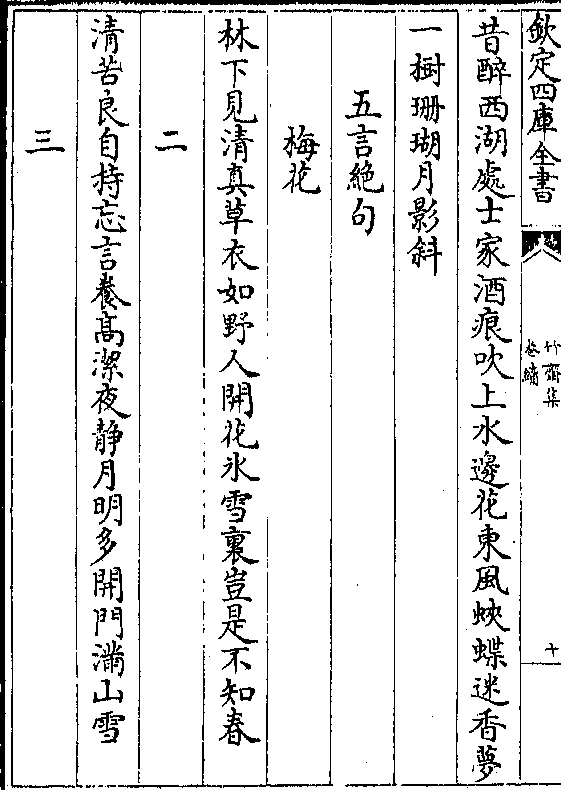 欽定四庫全書
竹齋集
卷續
十
昔醉西湖處士家酒痕吹上水邊花東風蛺蝶迷香夢
一樹珊瑚月影斜
五言絶句
梅花
林下見清真草衣如野人開花氷雪裏豈是不知春
二
清苦良自持忘言養髙潔夜静月明多開門滿山雪
三